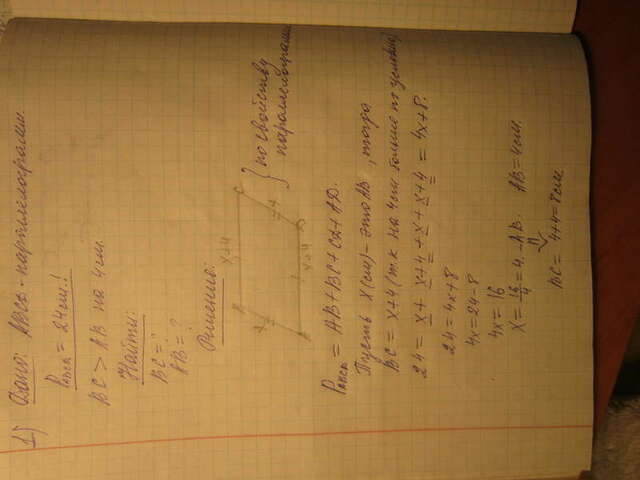 1) Дано: ABCD - параллелограмм.
P_ABCD = 24 см.
BC > AB на 4 см.
Найти:
BC = ?
AB = ?
Решение:
x+4
B
C
x
x
A
D
x+4
} по свойству
параллелограмма
P_ABCD = AB + BC + CD + AD.
Пусть x (см) - это AB, тогда
BC = x+4 (т.к на 4 см больше по условию)
24 = x + x+4 + x + x+4 = 4x+8.
24 = 4x+8
4x = 24-8
4x = 16
x = 16/4 = 4. - AB. AB = 4 см.
BC = 4+4 = 8 см